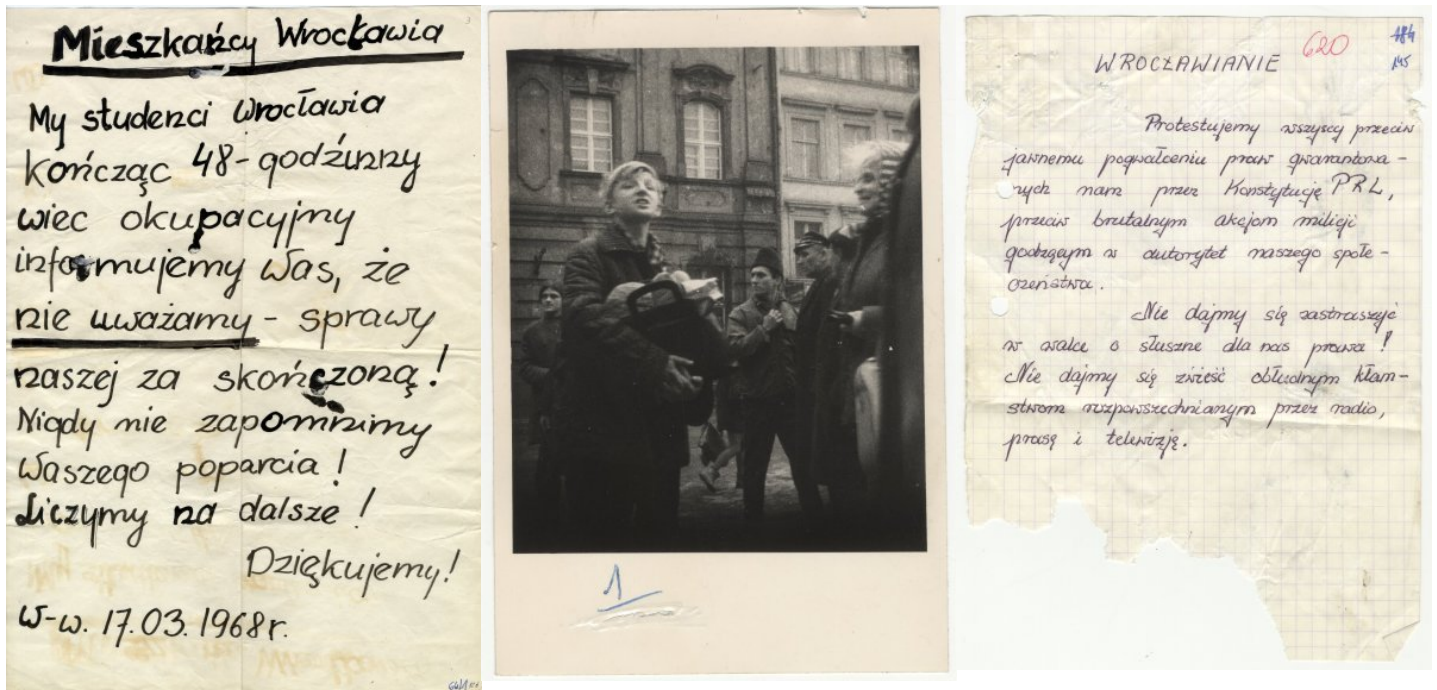 Mieszkańcy Wrocławia
My studenci Wrocławia
kończąc 48-godzinny
wiec okupacyjny
informujemy Was, że
nie uważamy - sprawy
naszej za skończoną!
Nigdy nie zapomnimy
Waszego poparcia!
Liczymy na dalsze!
Dziękujemy!
W-w. 17.03.1968r.
1
WROCŁAWIANIE
620
484
145
Protestujemy wszyscy przeciw
jawnemu pogwałceniu praw gwarantowa-
nych nam przez Konstytucję PRL,
przeciw brutalnym akcjom milicji
godzącym w autorytet naszego społe-
czeństwa.
Nie dajmy się zastraszyć
w walce o słuszne dla nas prawa!
Nie dajmy się zwieść obłudnym kłam-
stwom rozpowszechnianym przez radio,
prasę i telewizję.